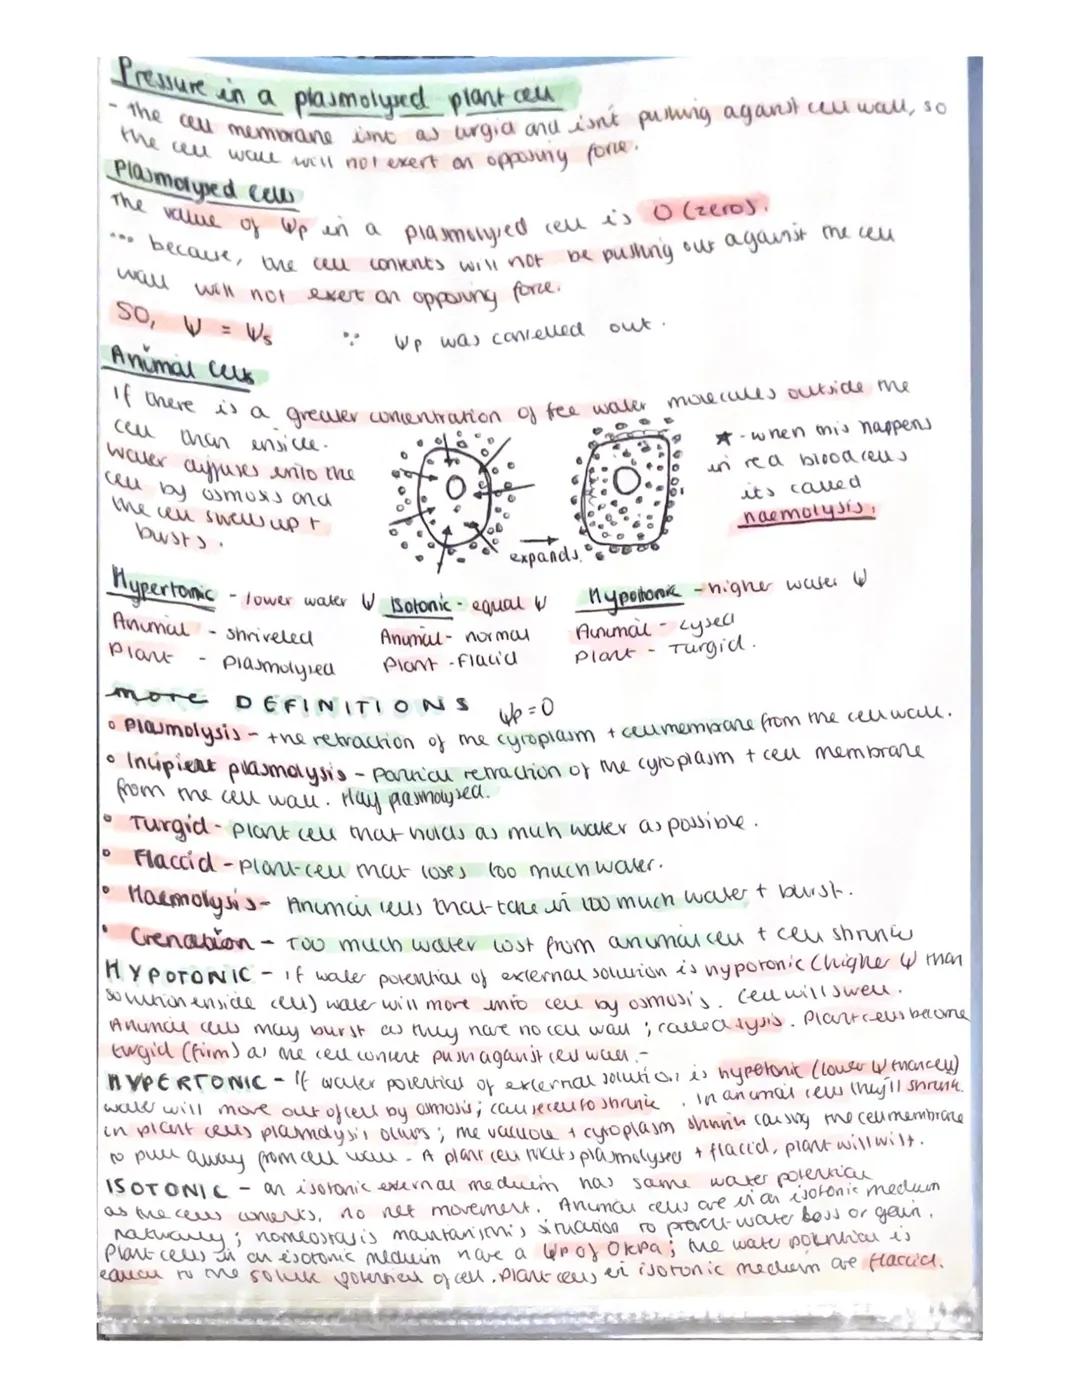 Pressure in a plasmolysed plant cell
- The cell membrane isnt as turgid and isn't pushing against cell wall, so
the cell wall will not exert an opposing force.
Plasmolysed cells
The value of Ψp in a plasmolysed cell is 0 (zero).
... because, the cell contents will not be pushing out against the cell
wall will not exert an opposing force.
SO, Ψ = Ψs ∵ Ψp was cancelled out.
Animal cells
If there is a greater concentration of fee water molecules outside the
cell than inside.
Water diffuses into the
cell by osmosis and
the cell swells up +
busts.
expands.
★ - when this happens
in red blood cells
its called
haemolysis.
Hypertonic - lower water Ψ
Animal - shriveled
Plant - Plasmolysed
Isotonic - equal Ψ
Animal - normal
Plant - Flacid
Hypotonic - higher water Ψ
Animal - Lysed
Plant - Turgid.
more DEFINITIONS Ψp = 0
• Plasmolysis - the retraction of the cytoplasm + cell membrane from the cell wall.
• Incipient plasmolysis - partial retraction of the cytoplasm + cell membrane
from the cell wall. Half plasmolysed.
• Turgid - plant cell that holds as much water as possible.
• Flaccid - plant cell that loses too much water.
• Haemolysis - Animal cells that take in too much water + burst.
• Crenation - Too much water lost from animal cell + cell shrinks
HYPOTONIC - if water potential of external solution is hypotonic (higher Ψ than
solution inside cell) water will move into cell by osmosis. Cell will swell.
Animal cells may burst as they have no cell wall; called lysis. Plant cells become
turgid (firm) as the cell content push against cell wall.-
HYPERTONIC - If water potential of external solution is hypetonic (lower Ψ than cell)
water will move out of cell by osmosis; cause cell to shrink. In animal cells they'll shrink.
in plant cells plasmolysis occurs; the vacuole + cytoplasm shrink causing the cell membrane
to pull away from cell wall. A plant cell that's plasmolysed + flaccid, plant will wilt.
ISOTONIC - an isotonic external medium has same water potential
as the cells contents. no net movement. Animal cells are in an isotonic medium
naturally; homeostasis maintain this situation to prevent water loss or gain.
Plant cells in an isotonic medium have a Ψp of 0kPa; the water potential is
equal to the solute potential of cell. Plant cells in isotonic medium are flaccid.